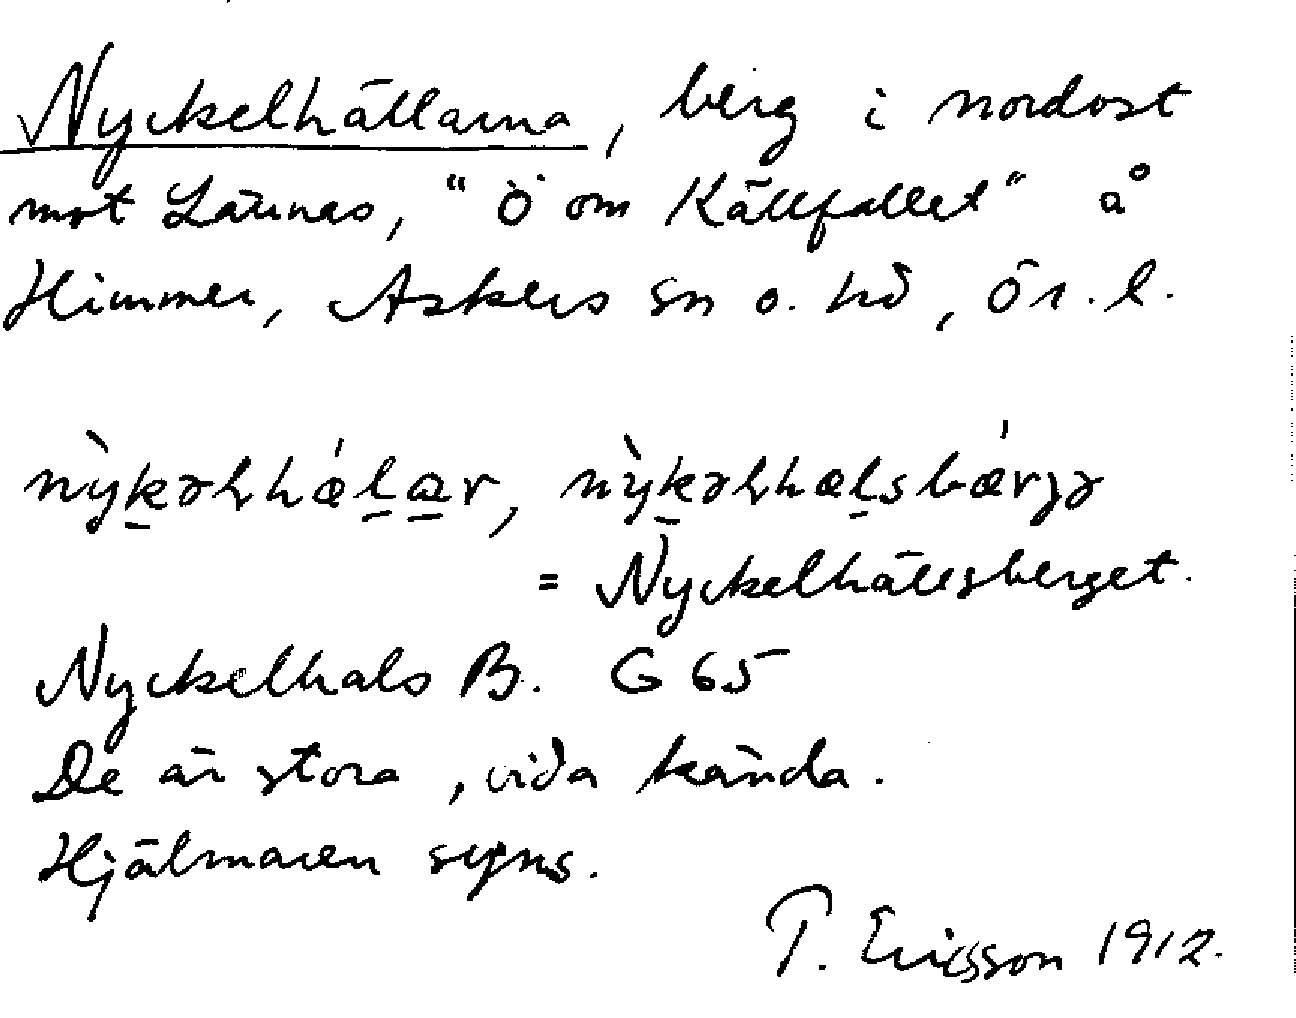 Nyckelhällarna, berg i nordost
mot Läunäs, "Ö om Källfallet" å
Himmer, Askers sn o. hd, Ör. l.
nỳk̠əlhǽl̠a̠r, nỳk̠əlhæl̠sbǽrjə
= Nyckelhällsberget.
Nyckelhals B. G 65
De är stora, vida kända.
Hjälmaren synes.
T. Ericsson 1912.